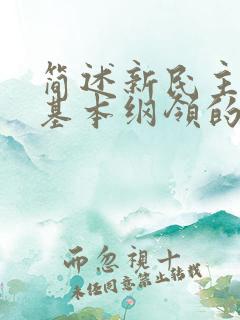 简述新民主
基本纲领的
而忽視十
未经同意禁止转载